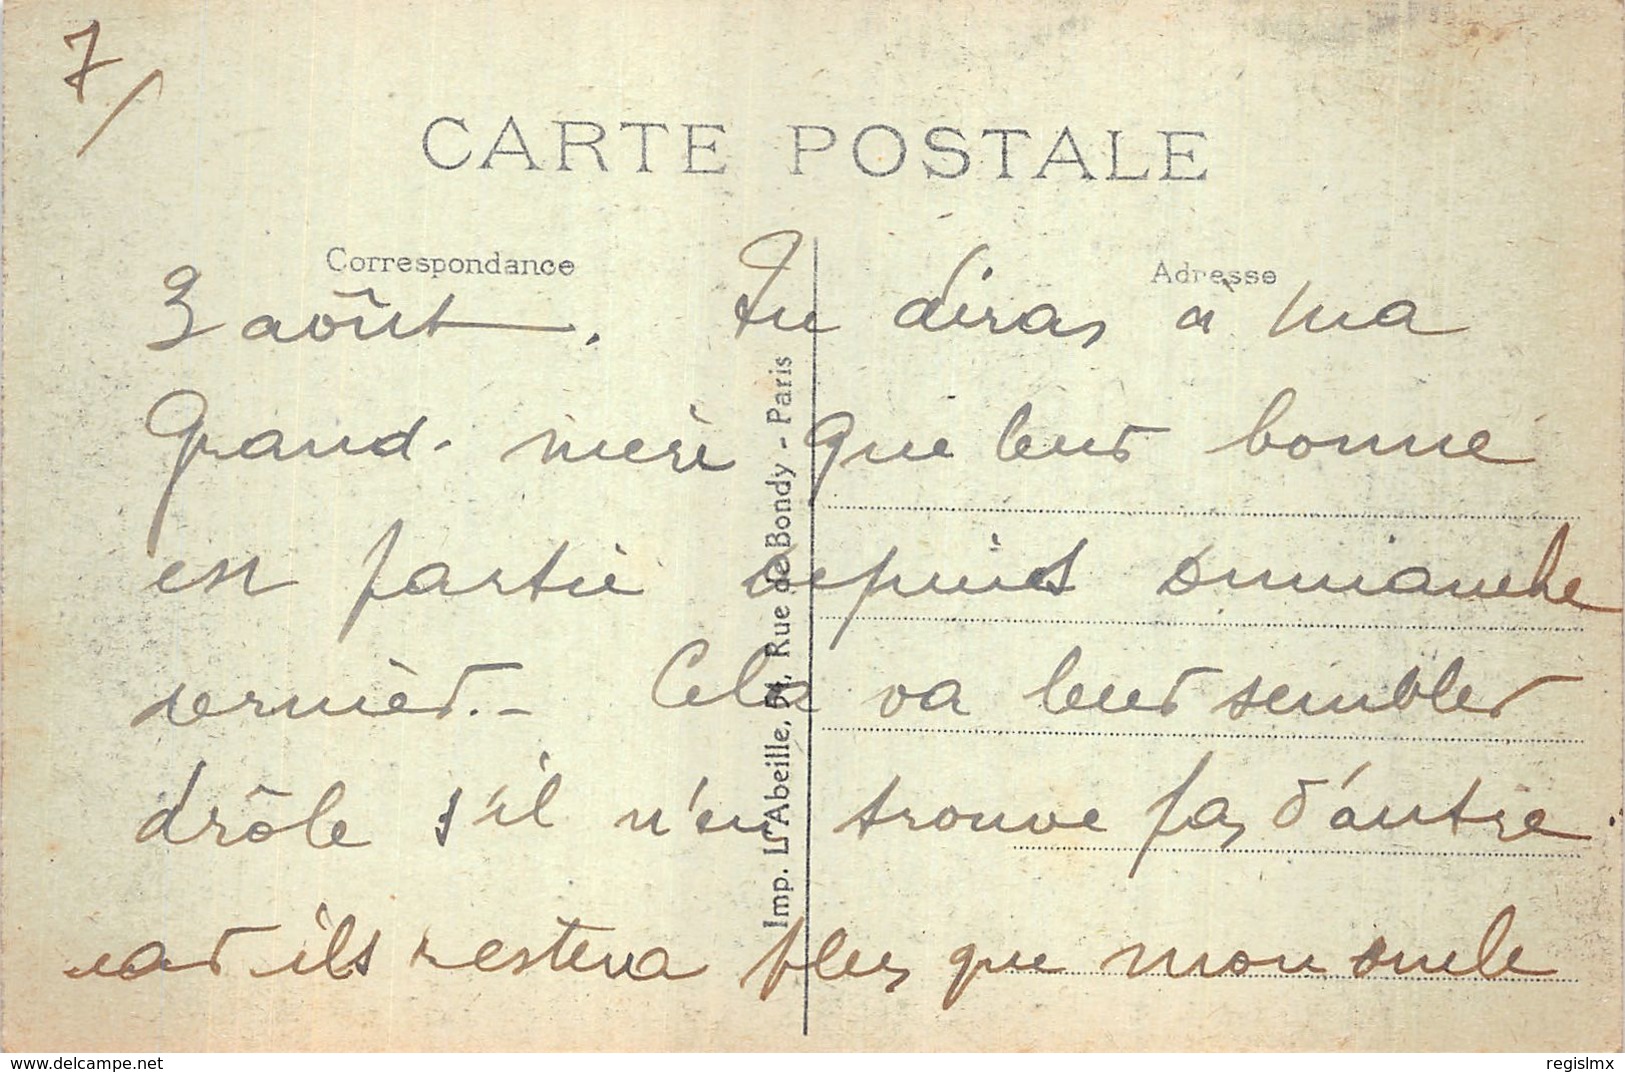 7/
CARTE POSTALE
Correspondance
Adresse
3 août. Tu diras à ma
Grand-mère que leur bonne
est partie depuis dimanche
dernier.- Cela va leur sembler
drôle s'il n'en trouve pas d'autre.
car ils restera plus que mon oncle
Imp. L'Abeille, 54, Rue de Bondy - Paris
www.delcampe.net
regislmx